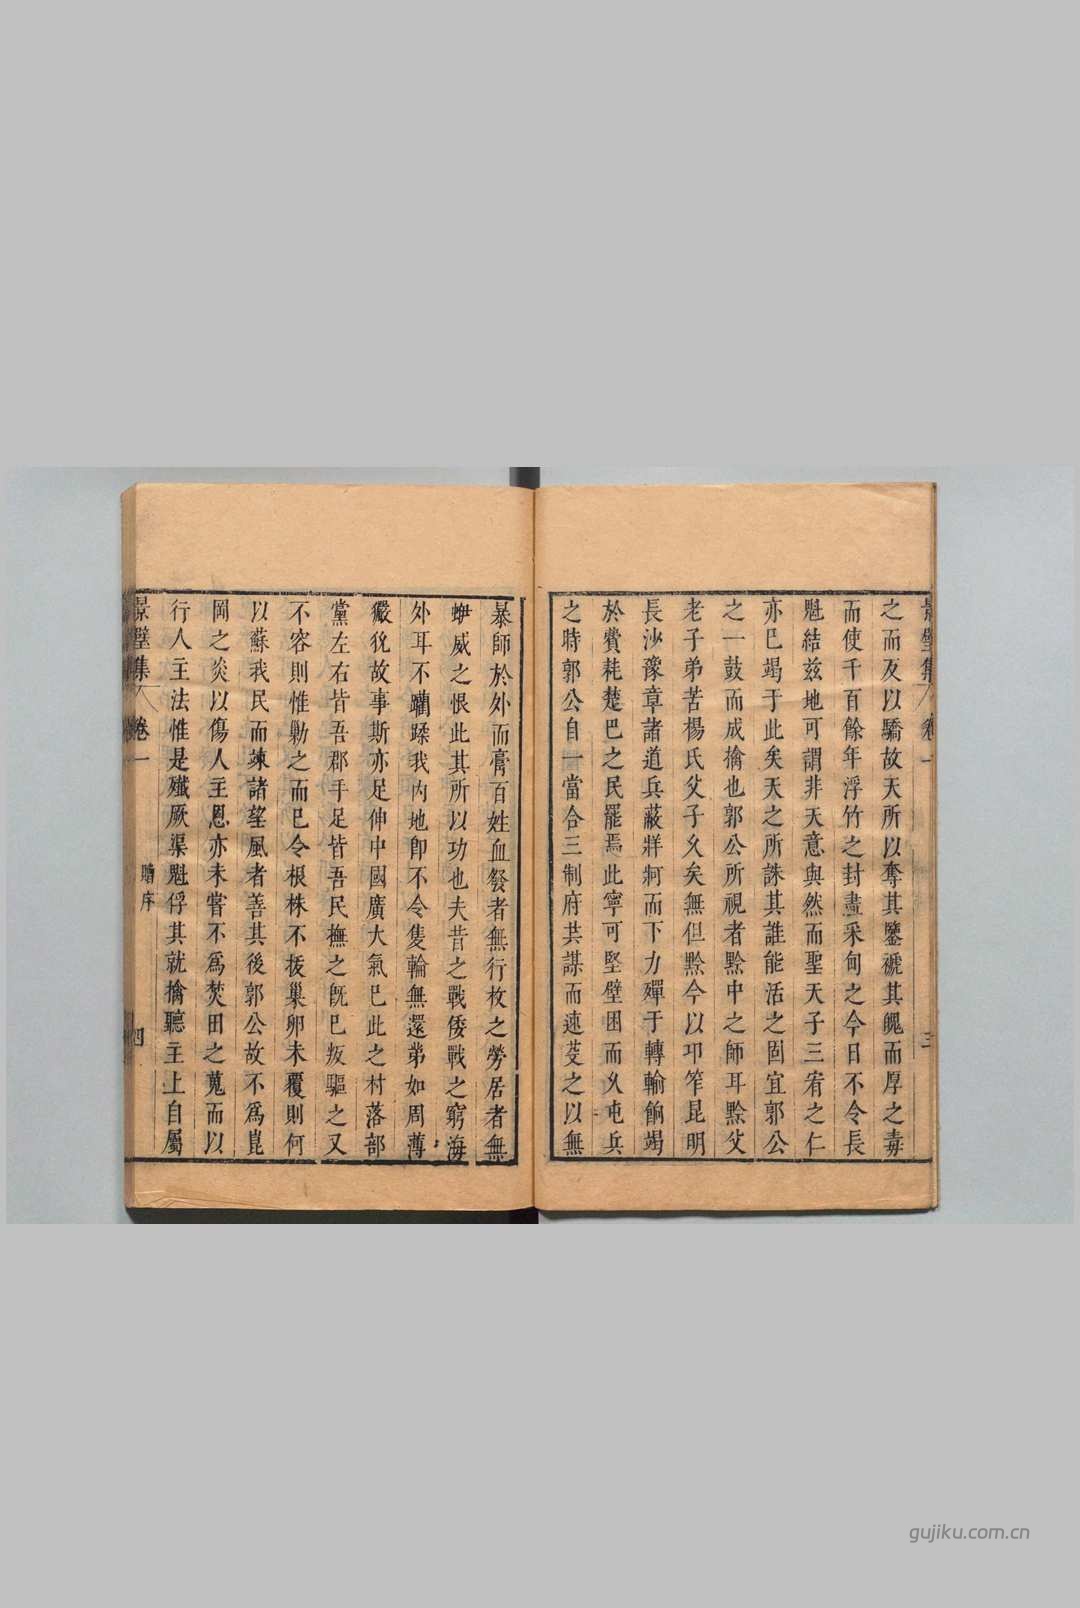 景璧集 卷一 三
之而反以驕故天所以奪其鑒褫其魄而厚之毒
而使千百餘年浮竹之封盡采甸之今日不令長
魁結兹地可謂非天意與然而聖天子三宥之仁
亦已竭于此矣天之所誅其誰能活之固宜郭公
之一鼓而成擒也郭公所視者黔中之師耳黔父
老子弟苦楊氏父子久矣無但黔今以邛笮昆明
長沙豫章諸道兵蔽牂牁而下力殫于轉輸餉竭
於費耗楚巴之民罷焉此寧可堅壁困而久屯兵
之時郭公自一當合三制府共謀而速芟之以無
暴師於外而膏百姓血發者無行枚之勞居者無
蛜威之恨此其所以功也夫昔之戰倭戰之窮海
外耳不躪蹂我内地卽不令隻輪無還苐如周薄
玁狁故事斯亦足伸中國廣大氣已此之村落部
黨左右皆吾郡手足皆吾民撫之旣已叛驅之又
不容則惟勦之而已令根株不拔巢卵未覆則何
以蘇我民而竦諸望風者善其後郭公故不爲崑
岡之炎以傷人主恩亦未嘗不爲焚田之蒐而以
行人主法惟是殲厥渠魁俘其就擒聽主上自屬
景璧集 卷一 贈序 四
gujiku.com.cn